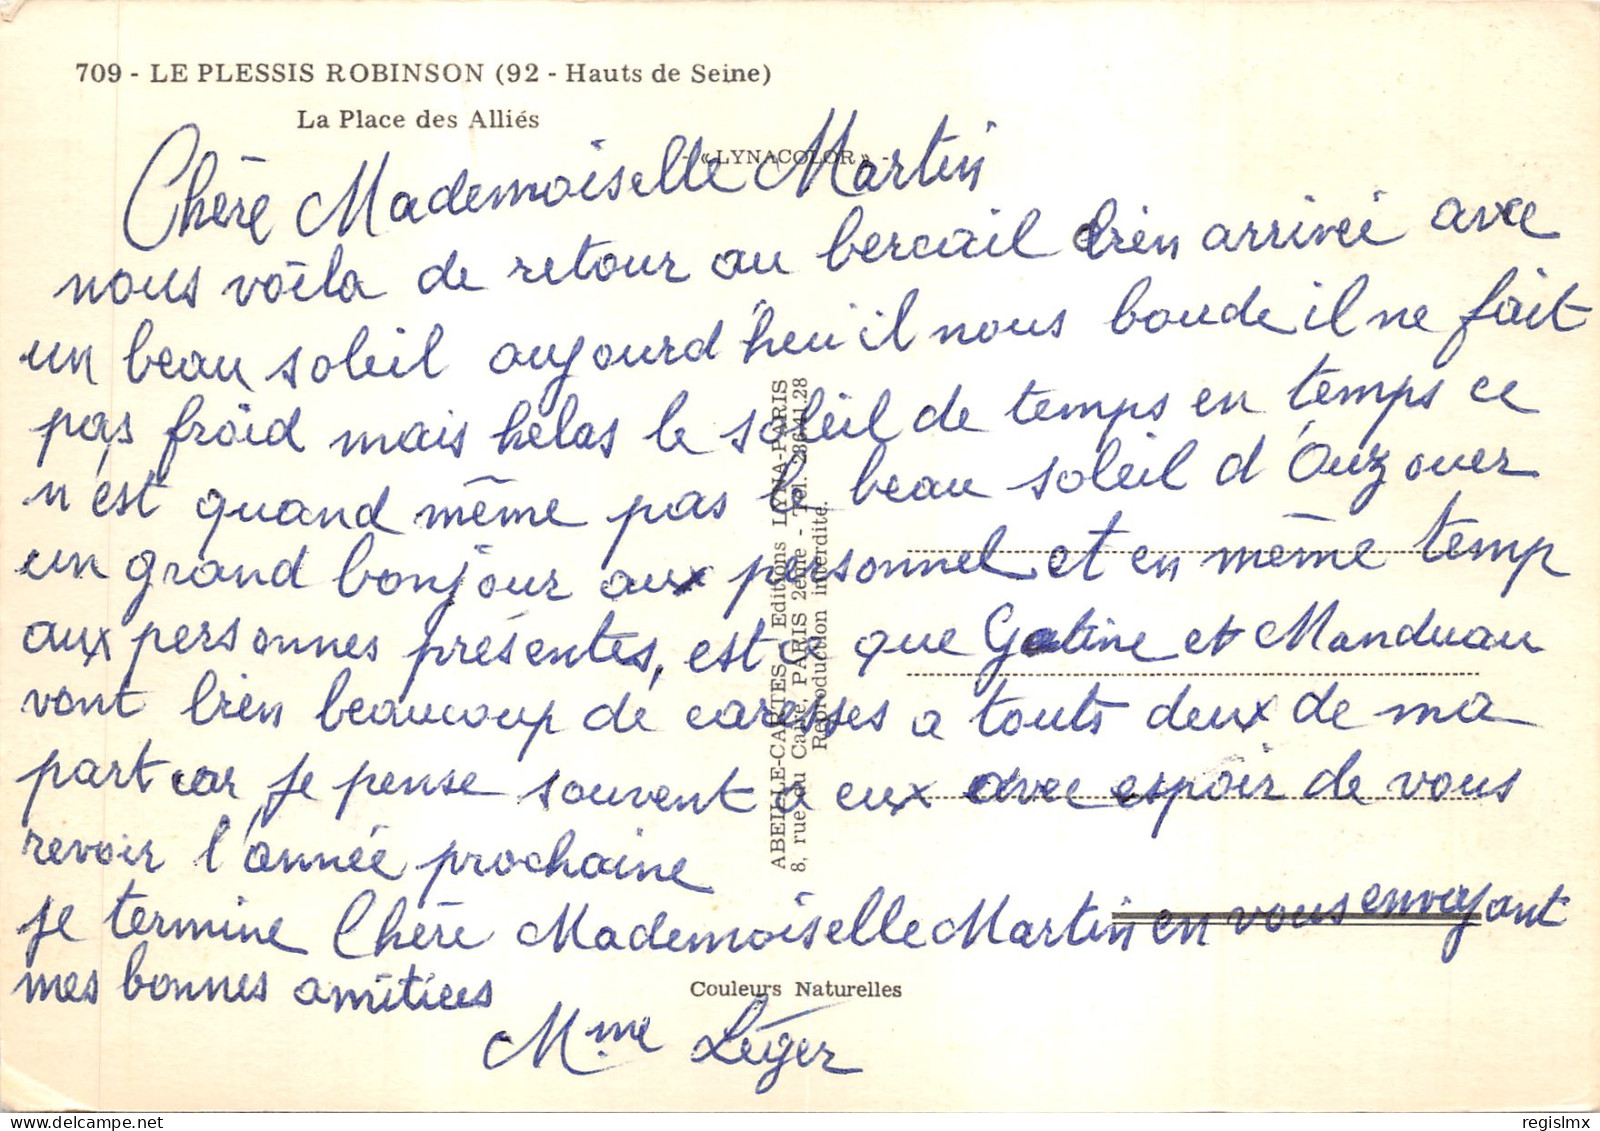 709 - LE PLESSIS ROBINSON (92 - Hauts de Seine)
La Place des Alliés
- «LYNACOLOR» -
Chère Mademoiselle Martin
nous voila de retour au bercail bien arrivée avec
un beau soleil aujourd'heui il nous boude il ne fait
pas froid mais hélas le soleil de temps en temps ce
n'est quand même pas le beau soleil d'Ouzouer
un grand bonjour aux personnel et en même temp
aux personnes présentes, est ce que Gatine et Manduau
vont bien beaucoup de caresses a touts deux de ma
part car je pense souvent à eux avec espoir de vous
revoir l'année prochaine
je termine Chère Mademoiselle Martin en vous envoyant
mes bonnes amitiées
Mme Léger
ABEILLE-CARTES Editions LYNA-PARIS
8, rue du Caire, PARIS 2ème - Tél. 236.41.28
Reproduction interdite.
Couleurs Naturelles
regislmx